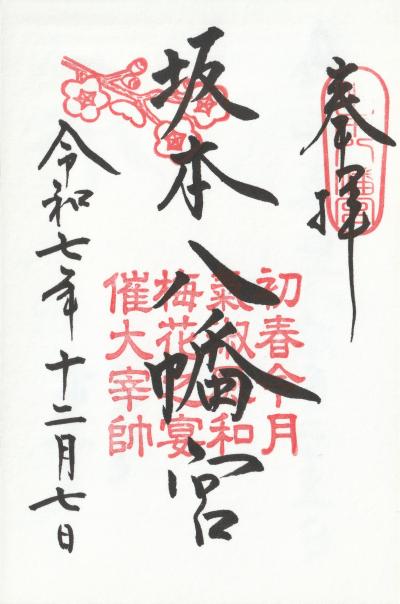 奉拝
坂本八幡宮
初春令月
氣淑風和
梅花之宴
催大宰帥
令和七年十二月七日